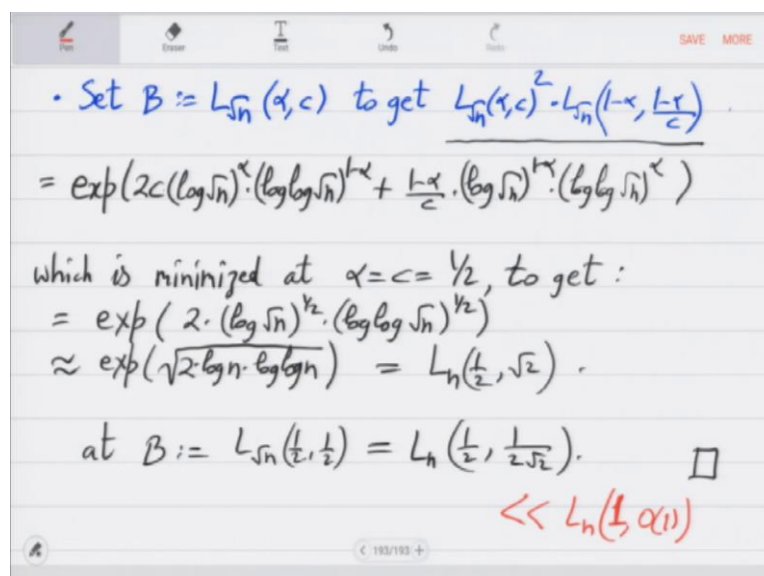 Pen Eraser Text Undo Redo SAVE MORE
• Set B := L_√n (α, c) to get L_√n(α,c)² · L_√n(1-α, (1-α)/c) .
= exp(2c(log √n)^α · (loglog √n)^(1-α) + (1-α)/c · (log √n)^(1-α) · (loglog √n)^α )
which is minimized at α=c= 1/2, to get :
= exp( 2 · (log √n)^(1/2) · (loglog √n)^(1/2) )
≈ exp(√(2·logn·loglogn)) = L_n(1/2, √2) .
at B := L_√n(1/2, 1/2) = L_n(1/2, 1/(2√2)). □
<< L_n(1, O(1))
< 193/193 +